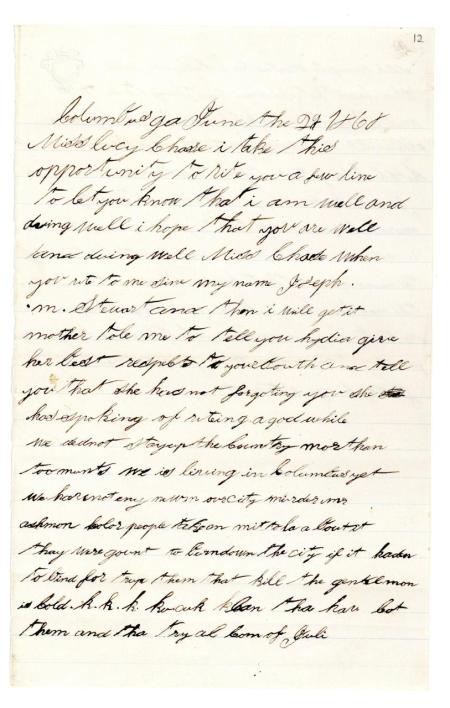 12
Columbus ga June the 29 1868
Miss lucy Chase i take this
opportunity to rite you a few line
to let you know that i am well and
doing well i hope that you are well
and doing well Miss Chase when
you rite to me sine my name Joseph.
.m. Stewart and then i will get it
mother tole me to tell you lydia give
her best respebts to you and tell
you that she has not forgoting you she
has spoking of riteing a god while
we did not stay up the Country mor than
too munts we is liveing in Columbus yet
we have not eny in our City murder mr
ashmon Color people about it
thay were gount to burn down the city if it haden
to bind for trup them that kill the gentelmon
is Cold .k. k. k klan tha have Cot
them and tha tryal Com of Juli